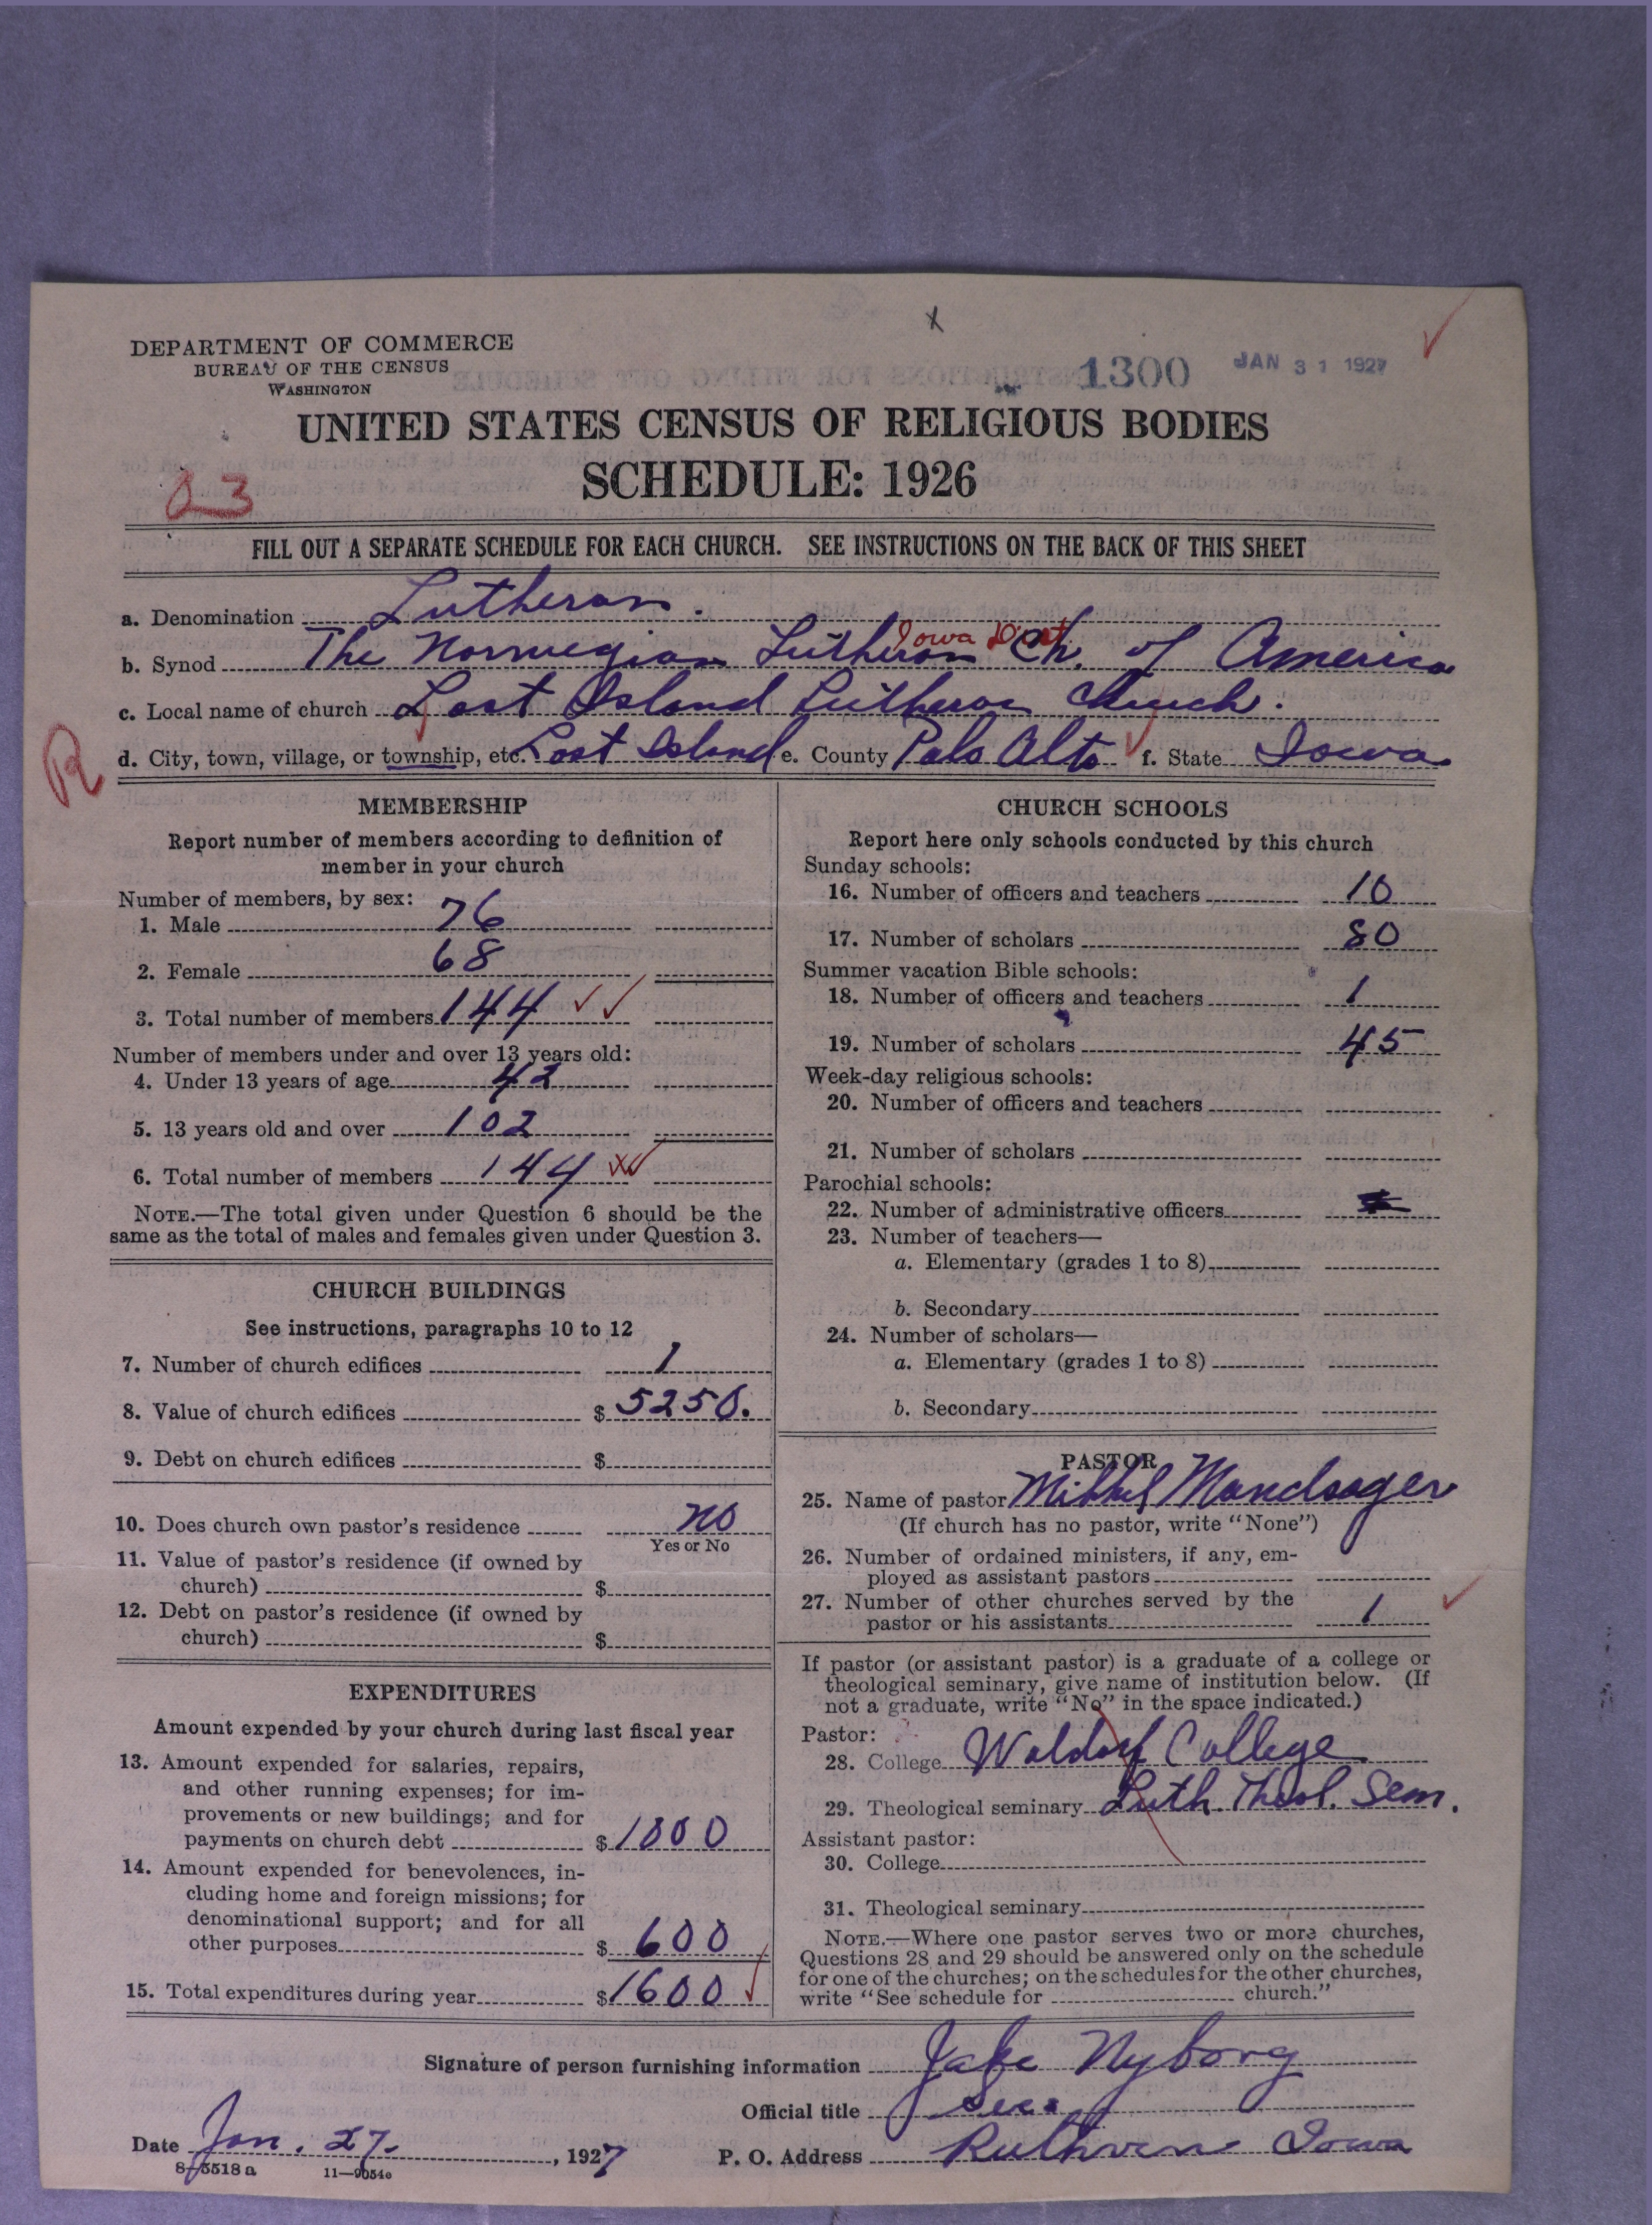 x
DEPARTMENT OF COMMERCE
BUREAU OF THE CENSUS
WASHINGTON
1300 JAN 31 1927
UNITED STATES CENSUS OF RELIGIOUS BODIES
SCHEDULE: 1926
FILL OUT A SEPARATE SCHEDULE FOR EACH CHURCH. SEE INSTRUCTIONS ON THE BACK OF THIS SHEET
a. Denomination Lutheran.
Iowa Dist
b. Synod The Norwegian Lutheran Ch. of America
c. Local name of church Lost Island Lutheran Church.
R
d. City, town, village, or township, etc. Lost Island e. County Palo Alto f. State Iowa
MEMBERSHIP
Report number of members according to definition of
member in your church
Number of members, by sex:
1. Male 76
2. Female 68
3. Total number of members 144
Number of members under and over 13 years old:
4. Under 13 years of age 42
5. 13 years old and over 102
6. Total number of members 144
NOTE.—The total given under Question 6 should be the
same as the total of males and females given under Question 3.
CHURCH BUILDINGS
See instructions, paragraphs 10 to 12
7. Number of church edifices 1
8. Value of church edifices $ 5250.
9. Debt on church edifices $
10. Does church own pastor's residence no
Yes or No
11. Value of pastor's residence (if owned by
church) $
12. Debt on pastor's residence (if owned by
church) $
EXPENDITURES
Amount expended by your church during last fiscal year
13. Amount expended for salaries, repairs,
and other running expenses; for im-
provements or new buildings; and for
payments on church debt $ 1000
14. Amount expended for benevolences, in-
cluding home and foreign missions; for
denominational support; and for all
other purposes $ 600
15. Total expenditures during year $ 1600
CHURCH SCHOOLS
Report here only schools conducted by this church
Sunday schools:
16. Number of officers and teachers 10
17. Number of scholars 80
Summer vacation Bible schools:
18. Number of officers and teachers 1
19. Number of scholars 45
Week-day religious schools:
20. Number of officers and teachers
21. Number of scholars
Parochial schools:
22. Number of administrative officers
23. Number of teachers—
a. Elementary (grades 1 to 8)
b. Secondary
24. Number of scholars—
a. Elementary (grades 1 to 8)
b. Secondary
PASTOR
25. Name of pastor Mikkel Mandsager
(If church has no pastor, write "None")
26. Number of ordained ministers, if any, em-
ployed as assistant pastors
27. Number of other churches served by the
pastor or his assistants 1
If pastor (or assistant pastor) is a graduate of a college or
theological seminary, give name of institution below. (If
not a graduate, write "No" in the space indicated.)
Pastor:
28. College Waldorf College
29. Theological seminary Luth. Theol. Sem.
Assistant pastor:
30. College
31. Theological seminary
NOTE.—Where one pastor serves two or more churches,
Questions 28 and 29 should be answered only on the schedule
for one of the churches; on the schedules for the other churches,
write "See schedule for church."
Signature of person furnishing information Jake Nyborg
Official title Sec.
Date Jan. 27, 1927 P. O. Address Ruthven Iowa
8-5518 a 11-9054e